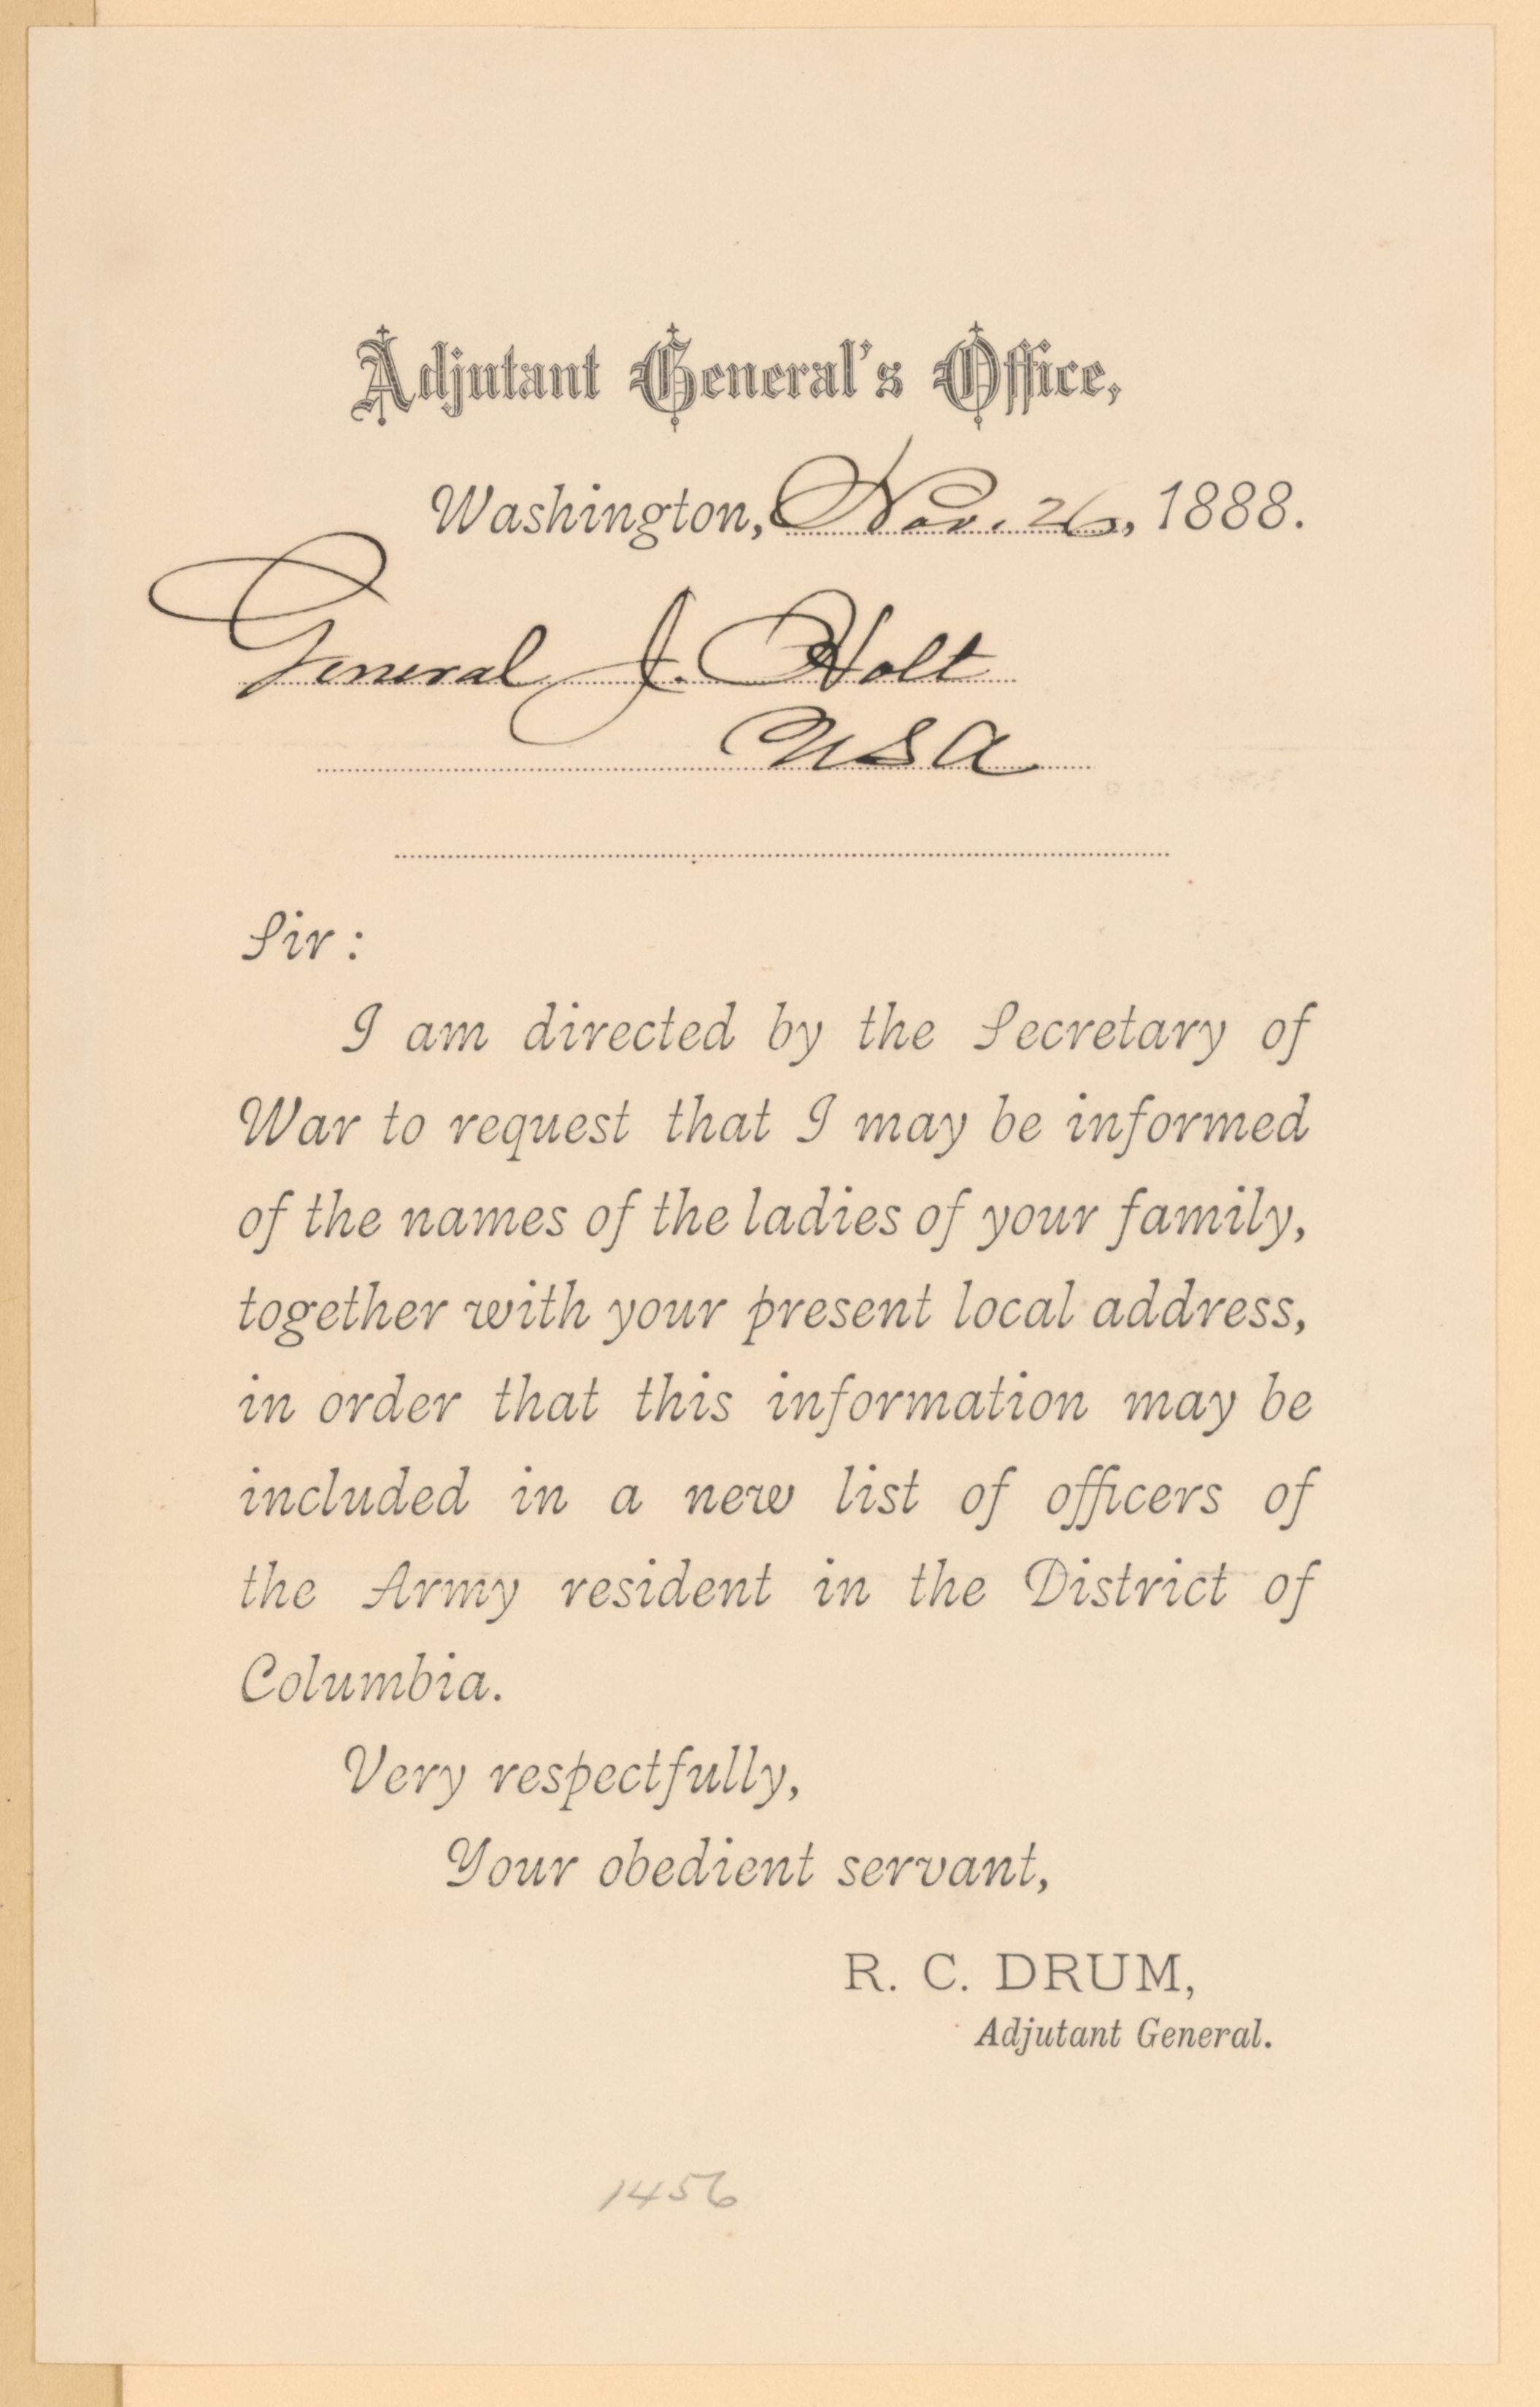 Adjutant General's Office,
Washington, Nov. 26, 1888.
General J. Holt
USA
Sir :
I am directed by the Secretary of
War to request that I may be informed
of the names of the ladies of your family,
together with your present local address,
in order that this information may be
included in a new list of officers of
the Army resident in the District of
Columbia.
Very respectfully,
Your obedient servant,
R. C. DRUM,
Adjutant General.
1456